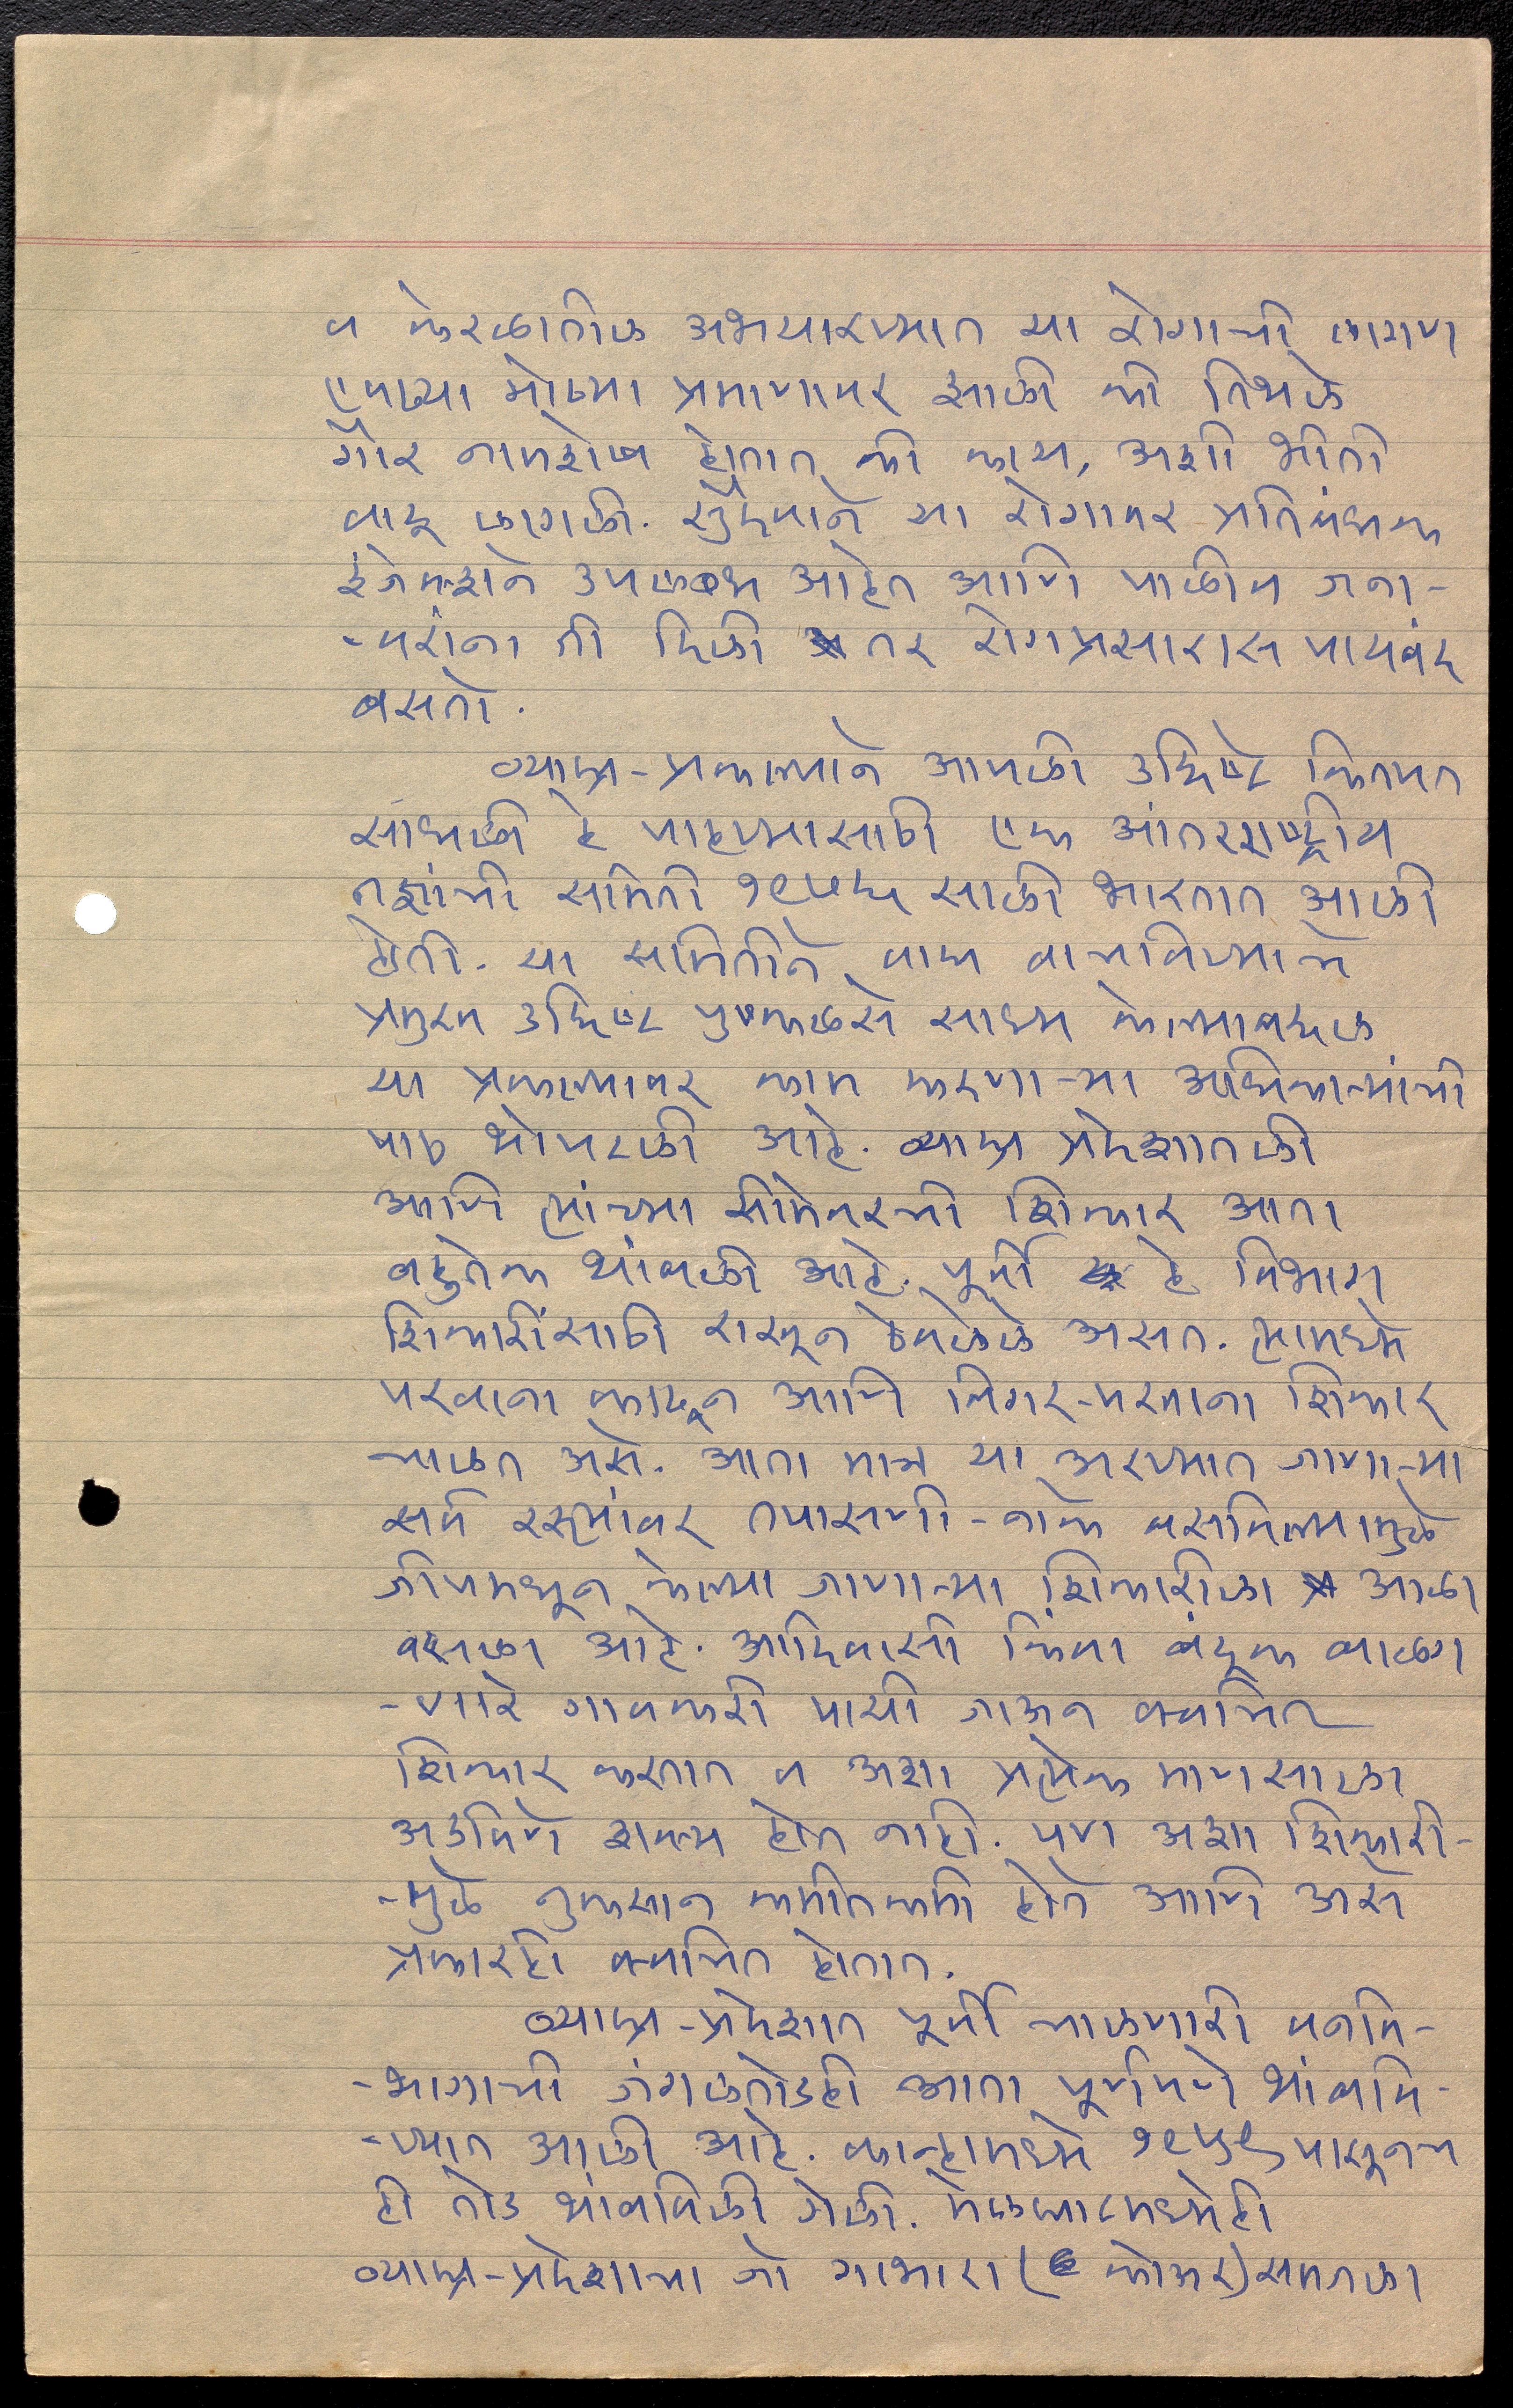 व केरळातील अभयारण्यात या रोगाची लागण
एवढ्या मोठ्या प्रमाणावर झाली की तिथले
गौर नामशेष होतात की काय, अशी भीती
वाटू लागली. सुदैवाने या रोगावर प्रतिबंधक
इंजेक्शने उपलब्ध आहेत आणि पाळीव जना-
-वरांना ती दिली तर रोगप्रसारास पायबंद
बसतो.
व्याघ्र-प्रकल्पाने आपली उद्दिष्टे कितपत
साधली हे पाहण्यासाठी एक आंतरराष्ट्रीय
तज्ञांची समिती १९७६ साली भारतात आली
होती. या समितीने वाघ वाचविण्याचे
प्रमुख उद्दिष्ट पुष्कळसे साध्य केल्याबद्दल
या प्रकल्पावर काम करणाऱ्या अधिकाऱ्यांची
पाठ थोपटली आहे. व्याघ्र प्रदेशातली
आणि त्यांच्या सीमेवरची शिकार आता
बहुतेक थांबली आहे. पूर्वी हे विभाग
शिकारीसाठी राखून ठेवलेले असत. त्यामध्ये
परवाना काढून आणि बिगर-परवाना शिकार
चालत असे. आता मात्र या अरण्यात जाणाऱ्या
सर्व रस्त्यांवर तपासणी-नाके बसविल्यामुळे
जीपमधून केल्या जाणाऱ्या शिकारीला आळा
बसला आहे. आदिवासी किंवा बंदूक बाळग
-णारे गावकरी पायी जाऊन क्वचित
शिकार करतात व अशा प्रत्येक माणसाला
अडविणे शक्य होत नाही. पण अशा शिकारी-
-मुळे नुकसान कमीतकमी होते आणि असे
प्रकारही क्वचित होतात.
व्याघ्र-प्रदेशात पूर्वी चालणारी वनवि-
-भागाची जंगलतोडही आता पूर्णपणे थांबवि-
-ण्यात आली आहे. कान्हामध्ये १९७९पासूनच
ही तोड थांबविली गेली. मेळघाटमध्येही
व्याघ्र-प्रदेशाचा जो गाभारा (कोअर) समजला